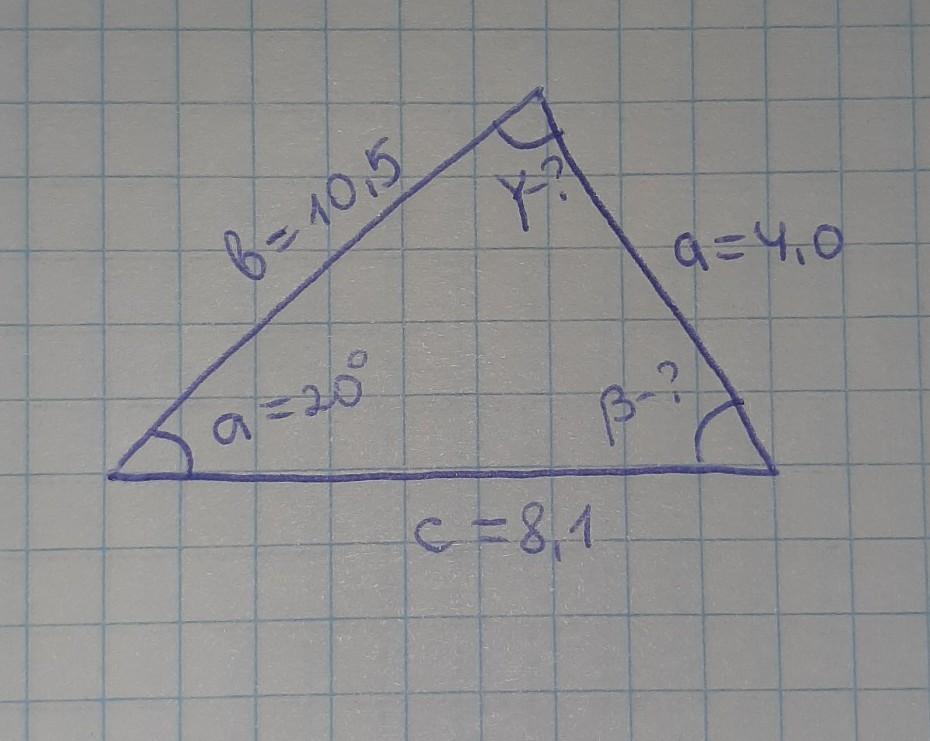 b=10,5
γ-?
a=4,0
a=20°
β-?
c=8,1